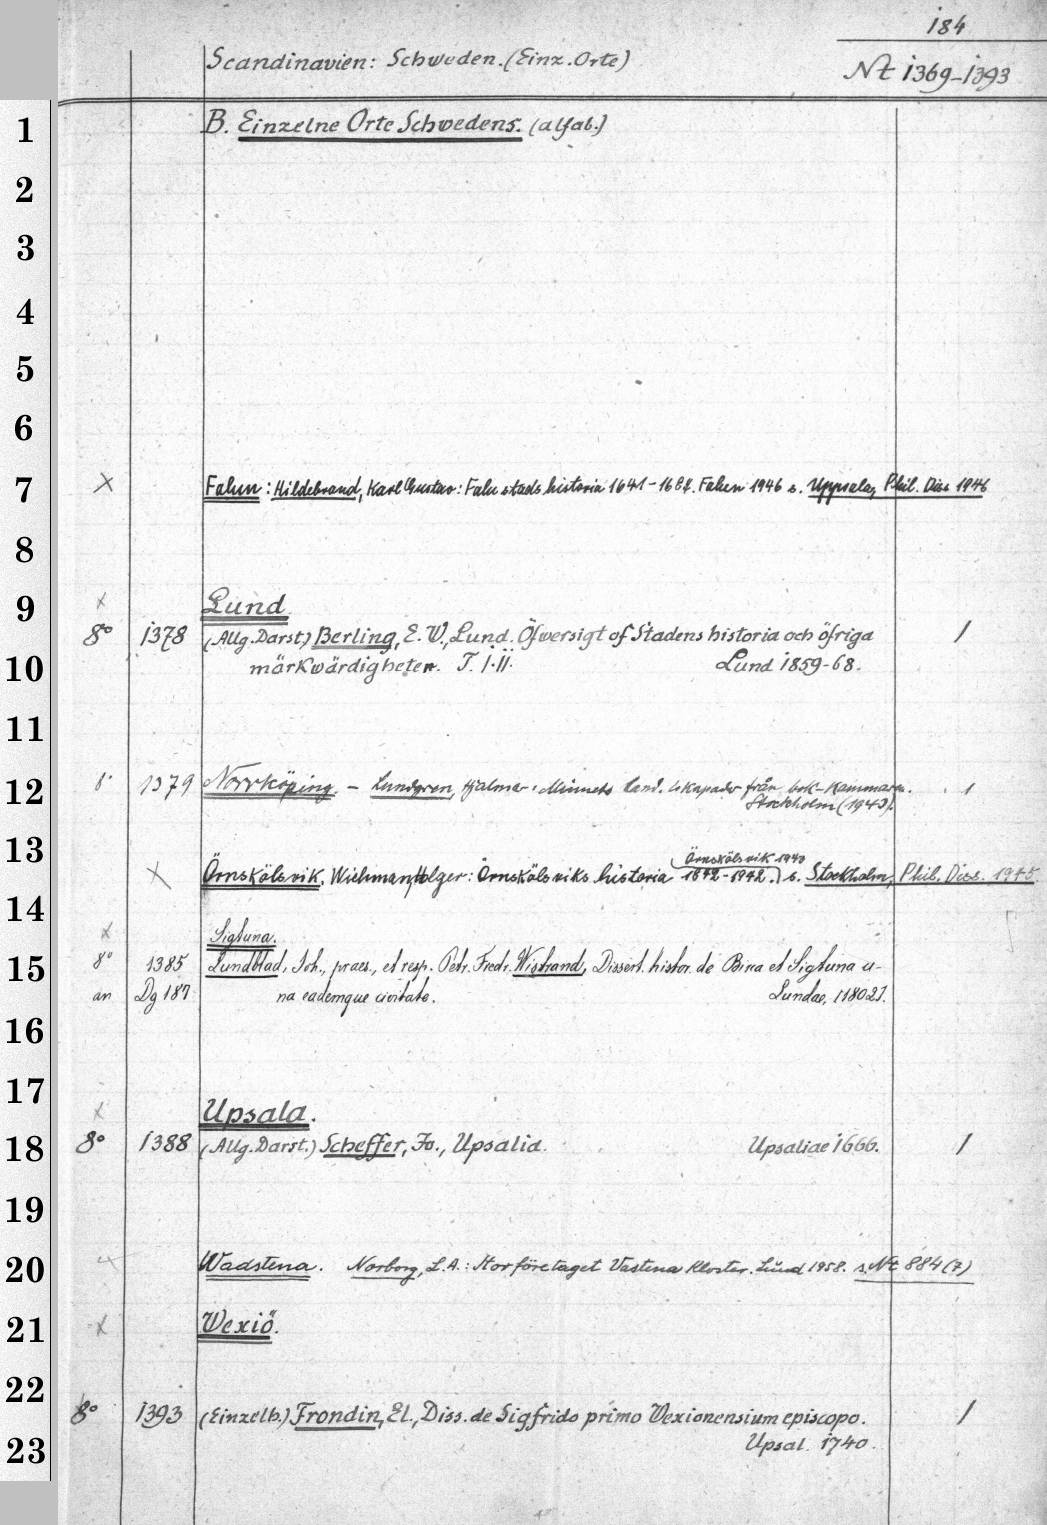 184
Scandinavien: Schweden. (Einz. Orte)
Nt 1369-1393
1 B. Einzelne Orte Schwedens. (alfab.)
2
3
4
5
6
7 X Falun: Hildebrand, Karl Gustav: Falu stads historia 1641-1687. Falun 1946 s. Uppsala, Phil. Diss 1946
8
9 x Lund
8° 1378 (Allg. Darst.) Berling, E. W., Lund. Öfwersigt of Stadens historia och öfriga 1
10 märkwärdigheter. T. I.II. Lund 1859-68.
11
12 8° 1379 Norrköping. - Lundgren, Hjalmar: Minnets land. från bok-Kammaren. 1
Stockholm (1943).
13 Örnskölsvik 1943
X Örnskölsvik, Wichman, Holger: Örnskölsviks historia 1842-1942.) s. Stockholm, Phil. Diss. 1945.
14
x Sigtuna.
15 8° 1385 Lundblad, Joh., praes., et resp. Petr. Fredr. Wistrand, Dissert. histor. de Birca et Sigtuna u-
an Dg 187 na eademque civitate. Lundae, [1802].
16
17
x Upsala.
18 8° 1388 (Allg. Darst.) Scheffer, Jo., Upsalia. Upsaliae 1666. 1
19
20 x Wadstena. Norborg, L.A.: Storföretaget Vastena Kloster. Lund 1958. s. Nt 884(7)
21 x Wexiö.
22
8° 1393 (Einzelb.) Frondin, El., Diss. de Sigfrido primo Vexionensium episcopo. 1
23 Upsal. 1740.